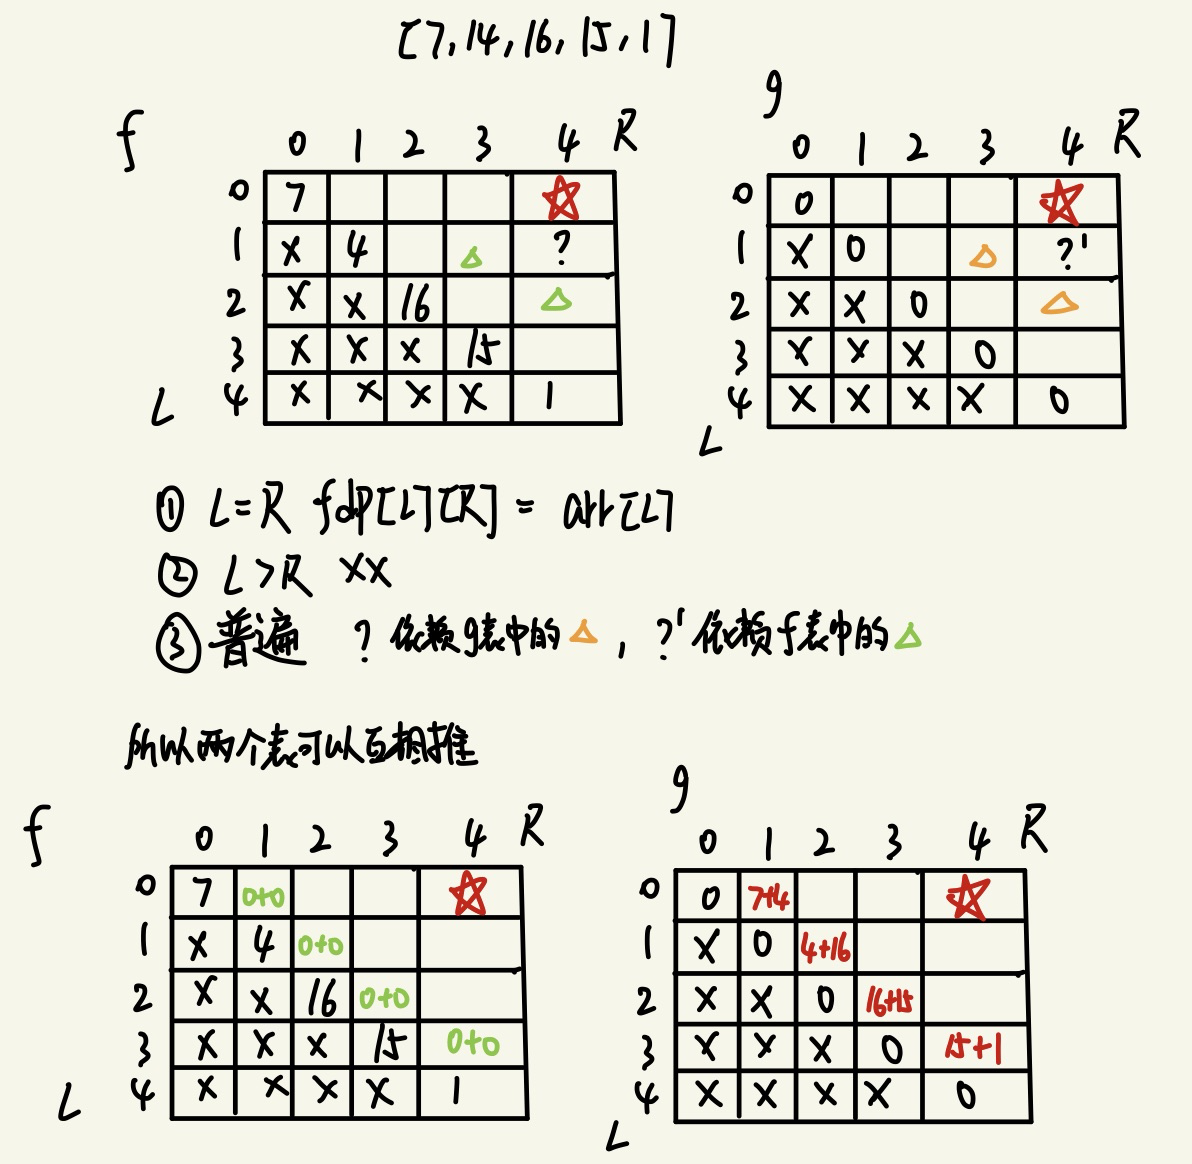 [7,14,16,15,1]
f
g
0 1 2 3 4 R
0 7
1 x 4 ?
2 x x 16
3 x x x 15
4 x x x x 1
L
0 1 2 3 4 R
0 0
1 x 0 ?'
2 x x 0
3 x x x 0
4 x x x x 0
L
① L=R fdp[L][R] = arr[L]
② L>R xx
③ 普遍 ? 依赖g表中的△, ?' 依赖f表中的△
所以两个表可以互相推
f
g
0 1 2 3 4 R
0 7 0+0
1 x 4 0+0
2 x x 16 0+0
3 x x x 15 0+0
4 x x x x 1
L
0 1 2 3 4 R
0 0 7+4
1 x 0 4+16
2 x x 0 16+15
3 x x x 0 15+1
4 x x x x 0
L